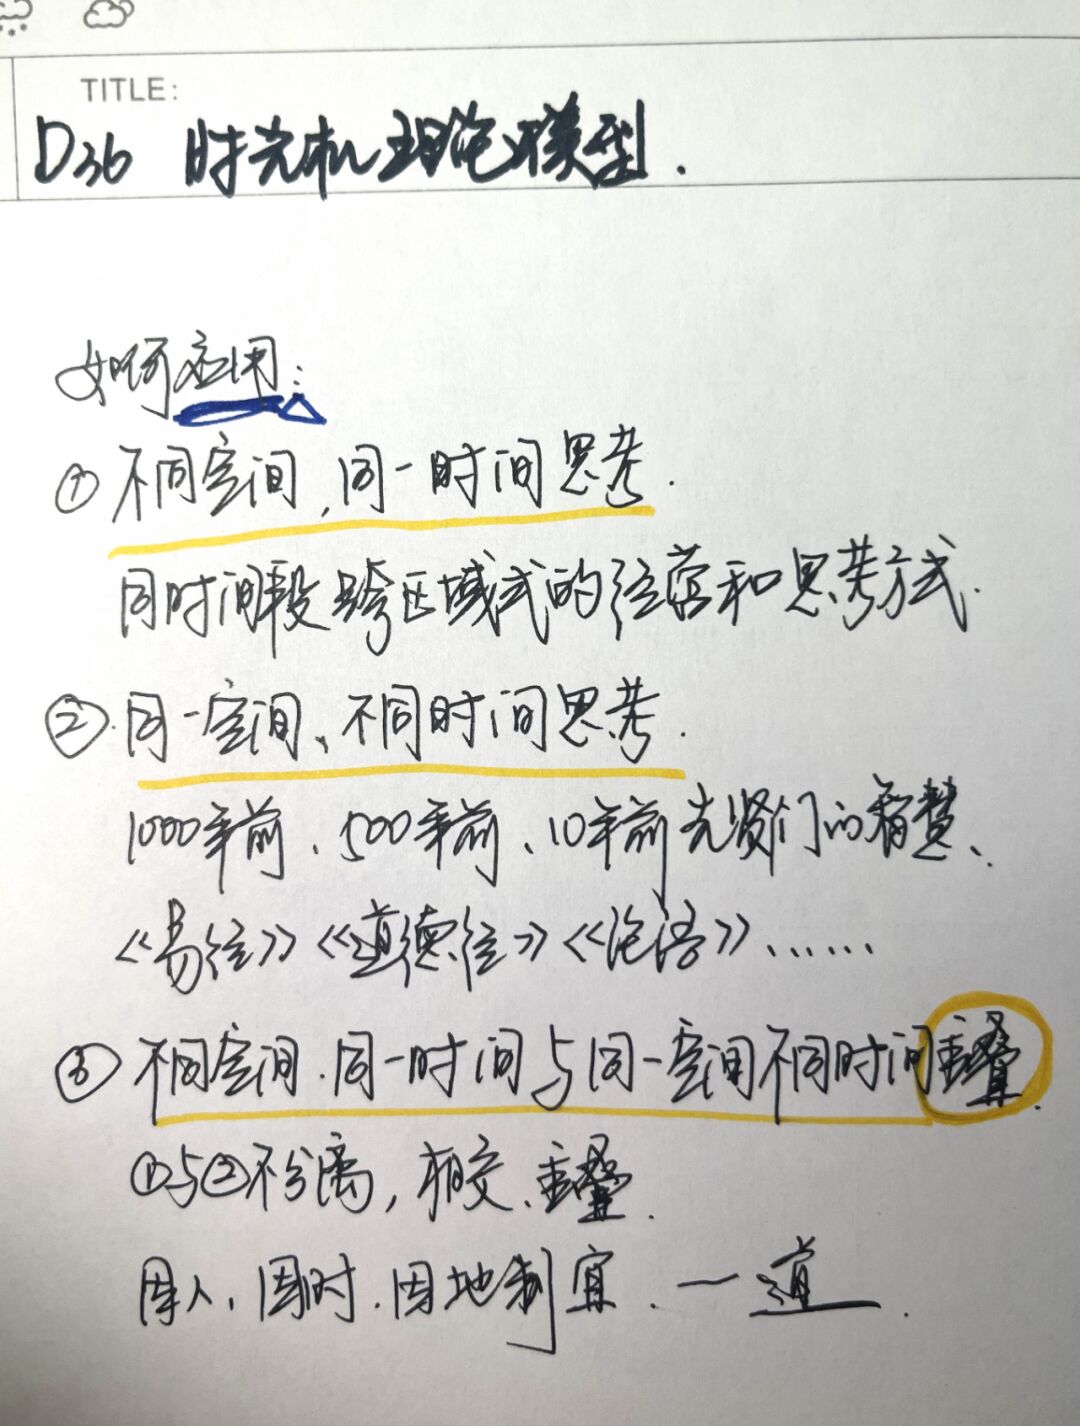 TITLE:
D36 时光机理论模型.
如何应用:
① 不同空间,同一时间思考.
同时间段跨区域式的经营和思考方式.
②.同一空间、不同时间思考.
1000年前、500年前、10年前先贤们的智慧、
《易经》《道德经》《论语》......
③ 不同空间.同一时间与同一空间不同时间重叠.
①与②不分离,相交、重叠.
因人、因时.因地制宜.一道.